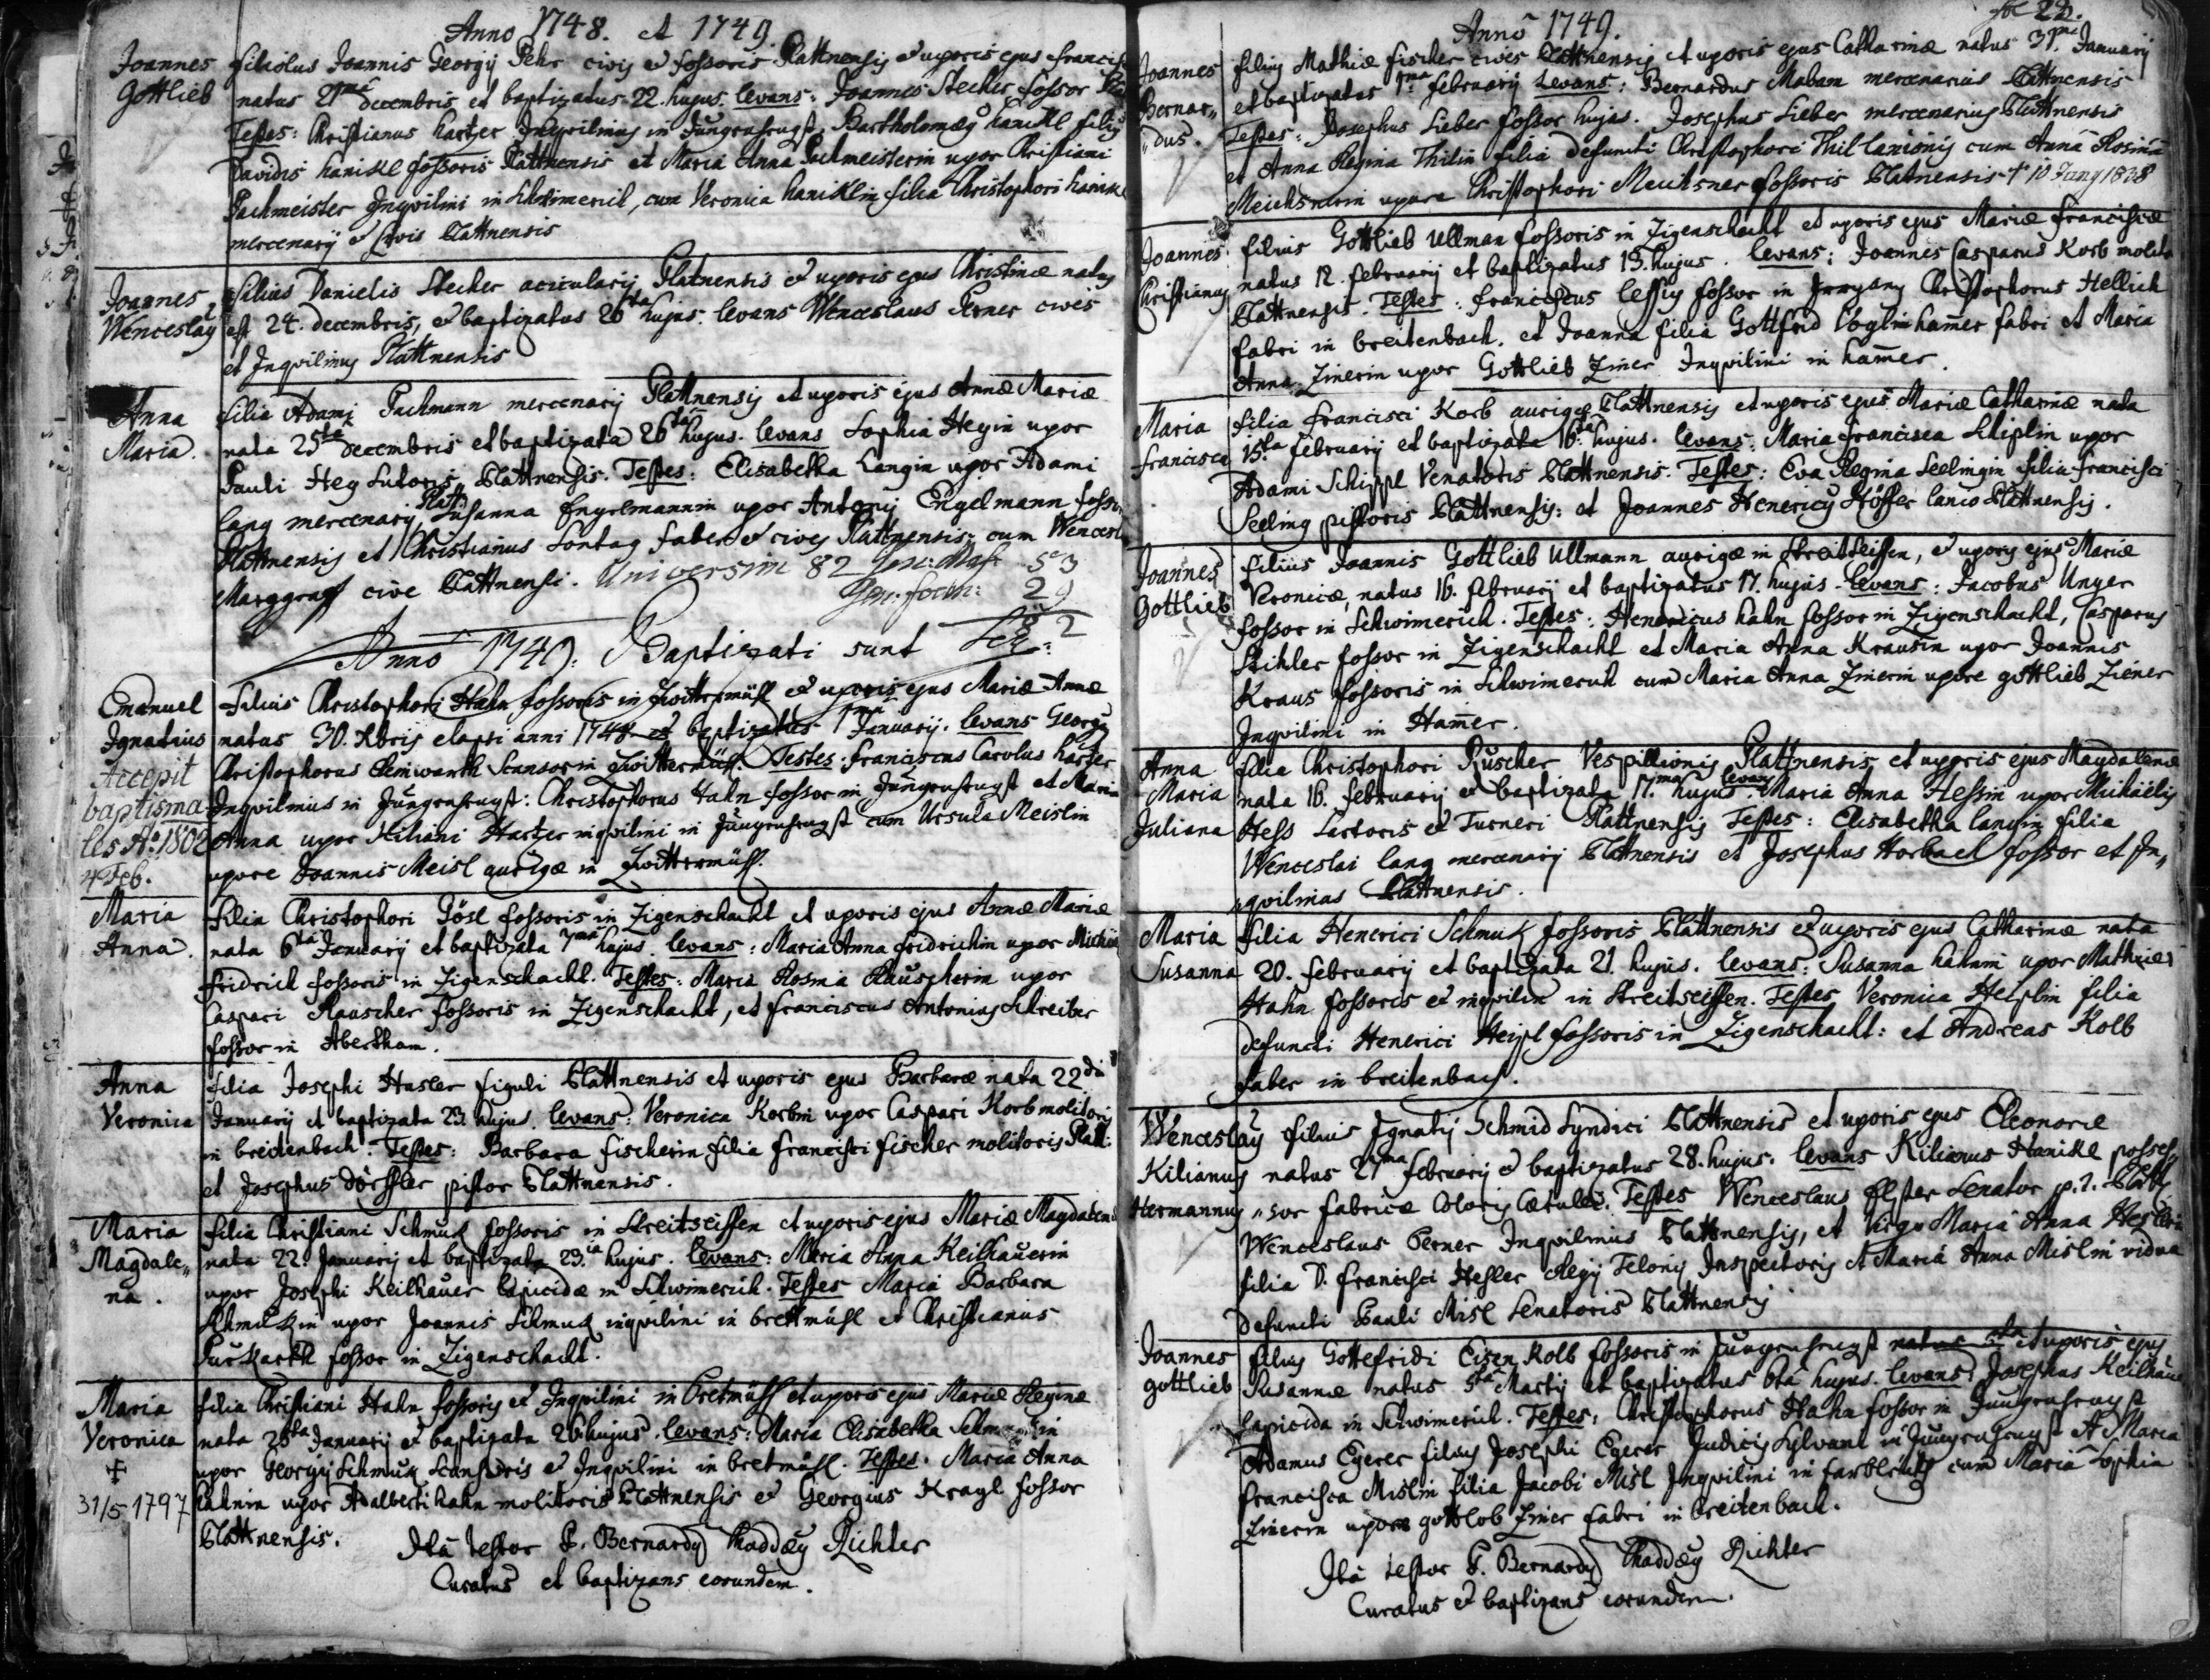 Anno 1748. et 1749.
Joannes Gottlieb
filiolus Joannis Georgij Pehr civis et fossoris Plattnensis et uxoris ejus
natus 21ma decembris et baptizatus 22. hujus. levans: Joannes Stecher fossor
Testes: Christianus hartzer Inqvilinus in Jungenhengst, Bartholomæy hanikl filij
Davidis hanikl fossoris Plattnensis et Maria Anna Pachmeisterin uxor Christiani
Pachmeister Inqvilini in Schwimerich, cum Veronica haniklin filia Christophori
mercenarij et civis Plattnensis
Joannes Wenceslaỹ
filius Danielis Stecher acicularij Platnensis et uxoris ejus Christinæ natus
est 24. decembris, et baptizatus 26ta hujus. levans Wenceslaus Perner civis
et Inqvilinus Plattnensis
Anna Maria.
filia Adami Pachmann mercenarij Plattnensis et uxoris ejus Annæ Mariæ
nata 25ta decembris et baptizata 26ta hujus. levans Sophia Heyin uxor
Pauli Hey Sutoris Plattnensis. Testes: Elisabetha Langin uxor Adami
lang mercenarij Platt: Susanna Engelmannin uxor Antonij Engelmann
Plattnensis et Christianus Sontag faber et civis Plattnensis: cum
Marggraff cive Plattnensi. Universim 82 Gen: Mas: 53
Gen: foem: 29
82
Anno 1749. Baptizati sunt Seq:
Emanuel Ignatius
Accepit
baptisma
les Aõ: 1802
4 Feb.
filius Christophori Hahn fossoris in Zwittermühl et uxoris ejus Mariæ Annæ
natus 30. Xbris elapsi anni 1748 et baptizatus 1ma Januarij. levans Georgỹ
Christophorus Scansor in Zwittermühl. Testes: Franciscus Carolus hartzer
Inqvilinus in Jungenhengst: Christophorus Hahn fossor in Jungenhengst et Maria
Anna uxor Kiliani Hartzer inqvilini in Jungenhengst cum Ursula Meislin
uxore Joannis Meisl aurigæ in Zwittermühl.
Maria Anna.
filia Christophori Pösl fossoris in Zigenschacht et uxoris ejus Annæ Mariæ
nata 6ta Januarij et baptizata 7ma hujus. levans: Maria Anna fridrichin uxor
fridrich fossoris in Zigenschacht. Testes: Maria Rosina Rauscherin uxor
Caspari Rauscher fossoris in Zigenschacht, et franciscus Antonius Schreiber
fossor in Abertham.
Anna Veronica
filia Josephi Hasler figuli Plattnensis et uxoris ejus Barbaræ nata 22da
Januarij et baptizata 23. hujus. levans: Veronica Korbin uxor Caspari Korb molitoris
in breitenbach. Testes: Barbara fischerin filia francisci fischer molitoris Platt:
et Josephus Dörffler pistor Plattnensis.
Maria Magdale„ na.
filia Christiani Schmuk fossoris in Streitseiffen et uxoris ejus Mariæ Magdalenæ
nata 22. Januarij et baptizata 23. hujus. levans: Maria Anna Keilhauerin
uxor Josephi Keilhauer lapicidæ in Schwimerich. Testes Maria Barbara
Schmukin uxor Joannis Schmuk inqvilini in brettmühl et Christianus
fossor in Zigenschacht.
Maria Veronica
✝
31/5 1797
filia Christiani Hahn fossoris et Inqvilini in bretmühl et uxoris ejus Mariæ Reginæ
nata 25ta Januarij et baptizata 26 hujus. levans: Maria Elisabetha
uxor Georgij Schmuk Scansoris et Inqvilini in bretmühl. Testes. Maria Anna
hahnin uxor Adalberti hahn molitoris Plattnensis et Georgius Kragl fossor
Plattnensis.
Ita testor P. Bernardỹ Thaddæỹ Richter
Curatus et baptizans eorundem.
fol 22.
Anno 1749.
Joannes Bernar„ „dus.
filius Mathiæ fischer civis Plattnensis et uxoris ejus Catharinæ natus 31ma Januarij
et baptizatus 1ma februarij. Levans: Bernardus Maban mercenarius Plattnensis
Testes: Josephus Lieber fossor hujus. Josephus Lieber mercenarius Plattnensis
et Anna Regina Thilin filia defuncti Christophori Thil lanionis cum Anna Rosina
Meichsnerin uxore Christophori Meichsner fossoris Platnensis ✝ 10 1838
Joannes Christianus
filius Gottlieb Ullman fossoris in Zigenschacht et uxoris ejus Mariæ franciscæ
natus 12. februarij et baptizatus 13. hujus. levans: Joannes Casparus Korb
Plattnensis. Testes: franciscus lessig fossor in Irrgang Christophorus Hellich
fabri in breitenbach. et Joanna filia Gottfrid Vogl in hamer fabri et Maria
Anna Zinerin uxor Gottlieb Ziner Inqvilini in hamer.
Maria francisca
filia francisci Korb aurigæ Plattnensis et uxoris ejus Mariæ Catharinæ nata
15ta februarij et baptizata 16ta hujus. levans: Maria francisca Schiplin uxor
Adami Schippl Venatoris Plattnensis. Testes: Eva Regina Seelingin filia francisci
Seeling pistoris Plattnensis: et Joannes Henericỹ Höffer lanio Plattnensis.
Joannes Gottlieb
filius Joannis Gottlieb Ullmann aurigæ in Streitseiffen, et uxoris ejus Mariæ
Veronicæ, natus 16. februarij et baptizatus 17. hujus. levans: Jacobus Unger
fossor in Schwimerich. Testes: Henericus hahn fossor in Zigenschacht, Casparus
Stihler fossor in Zigenschacht et Maria Anna Krausin uxor Joannis
Kraus fossoris in Schwimerich cum Maria Anna Zinerin uxore gottlieb Ziener
Inqvilini in Hamer.
Anna Maria Juliana
filia Christophori Ruscher Vespillionis Plattnensis et uxoris ejus Magdalenæ
nata 16. februarij et baptizata 17.ma hujus levans Maria Anna Hessin uxor Michaëlis
Hess Sartoris et Turneri Plattnensis Testes: Elisabetha langin filia
Wenceslai lang mercenarij Plattnensis et Josephus Horbach fossor et In„
„qvilinus Plattnensis.
Maria Susanna
filia Henerici Schmuk fossoris Plattnensis et uxoris ejus Catharinæ nata
20. februarij et baptizata 21. hujus. levans: Susanna hahnin uxor Mathiæ
Hahn fossoris et inqvilini in Streitseiffen. Testes Veronica Heiplin filia
defuncti Henerici Heipl fossoris in Zigenschacht: et Andreas Kolb
faber in breitenbach.
Wenceslaỹ Kilianus Hermannus
filius Ignatij Schmid Syndici Plattnensis et uxoris ejus Eleonoræ
natus 27ma februarij et baptizatus 28. hujus. levans Kilianus Hanikl posses„
„sor fabricæ coloris cærulei. Testes Wenceslaus Elster Senator
Wenceslaus Perner Inqvilinus Plattnensis, et Virgo Maria Anna
filia D. francisci Hesler Regij Telonij Inspectoris et Maria Anna Mislin vidua
defuncti Pauli Misl Senatoris Plattnensis
Joannes gottlieb
filius Gottefridi Eisen Kolb fossoris in Jungenhengst natus et uxoris ejus
Susannæ natus 5ta Martij et baptizatus 6ta hujus. levans Josephus Keilhauer
lapicida in Schwimerich. Testes: Christophorus Hahn fossor in Jungenhengst
Adamus Egerer filius Josephi Egerer Judicis Sylvani in Jungenhengst et Maria
francisca Mislin filia Jacobi Misl Inqvilini in farbleiten cum Maria Sophia
Zinerin uxore gottlob Ziner fabri in breitenbach.
Ita testor P. Bernardỹ Thaddæỹ Richter
Curatus et baptizans eorundem.